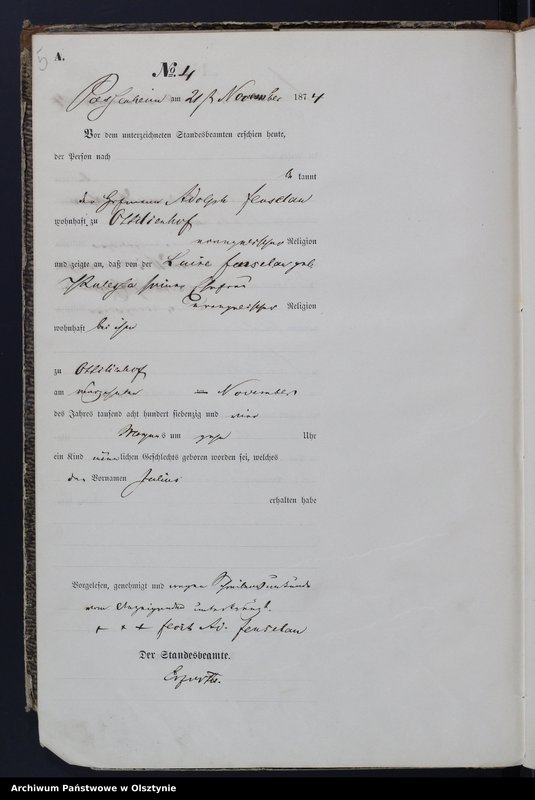 5
A.
No. 4
Passenheim am 21t November 1874
Vor dem unterzeichneten Standesbeamten erschien heute,
der Person nach
be kannt
der Hofmann Adolph Fenselau
wohnhaft zu Ottilienhof
evangelischer Religion
und zeigte an, daß von der Luise Fenselau geb.
seiner Ehefrau
evangelischer Religion
wohnhaft bei ihm
zu Ottilienhof
am vierzehnten = November
des Jahres tausend acht hundert siebenzig und vier
Morgens um Uhr
ein Kind männlichen Geschlechts geboren worden sei, welches
den Vornamen Julius
erhalten habe
Vorgelesen, genehmigt und wegen Schreibensunkunde
vom Anzeigenden unterkreuzt.
+ + + Ad. Fenselau
Der Standesbeamte.
Archiwum Państwowe w Olsztynie